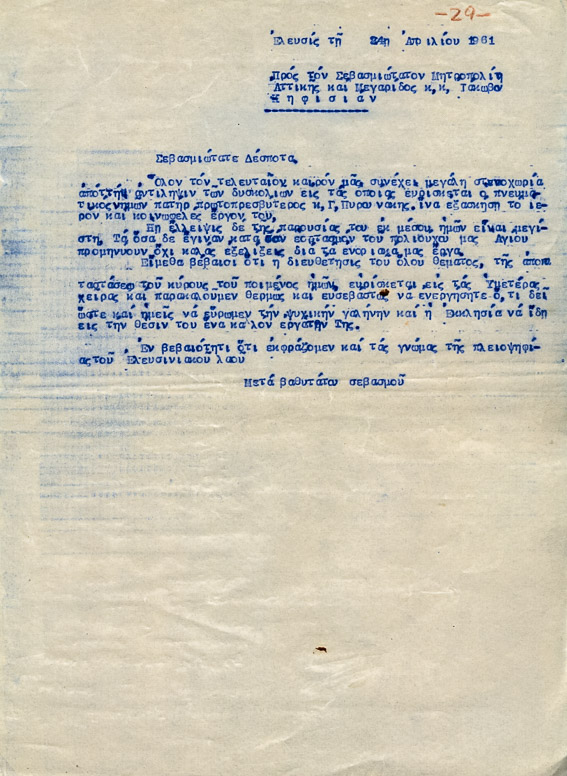 -29-
Ἐλευσίς τῇ 24η Ἀπριλίου 1961
Πρός τόν Σεβασμιώτατον Μητροπολίτη
Ἀττικης και Μεγαρίδος κ,κ, Ἰακωβο
Κ η φ ι σ ί α ν
Σεβασμιώτατε Δέσποτα,
Ὅλον τόν τελευταῖον καιρόν μᾶς συνέχει μεγάλη στενοχωρία
ἀπό τήν ἀντίληψιν των δυσκολιῶν εις τάς ὁποίας εὑρίσκεται ο πνευμα-
τικος ημῶν πατήρ πρωτοπρεσβυτερος κ,Γ,Πυρουνάκης, ἵνα εξασκηση το ιε-
ρόν και κοινωφελες ἐργον του,
Ἡ ἔλλειψις δε της παρουσίας του ἐκ μέσου ἡμῶν εἶναι μεγί-
στη, Τά ὅσα δε ἐγιναν κατά τον εορτασμον του πολιουχου μας Αγιου
προμηνυουν ὄχι καλας ἐξελίξεις διά τα ἐνοριακα μας ἐργα,
Εἴμεθα βέβαιοι ὅτι η διευθέτησις του ὅλου θεματος, τῆς ἀποκα
ταστάσεως τοῦ κυρους του ποιμένος ἡμῶν, εὑρίσκεται εις τάς Ὑμετέρας
χείρας καί παρακαλουμεν θερμως και ευσεβαστως να ενεργησητε ὅ,τι δεῖ
ὥστε και ἡμεις νά εὕρωμεν τήν ψυχικήν γαλήνην και ἡ Ἐκκλησία νά ἴδῃ
εις την θέσιν του ἕνα καλον εργάτην Της,
Ἐν βεβαιότητι ὅτι ἐκφράζομεν καί τάς γνώμας τῆς πλειοψηφί-
ας τοῦ Ἐλευσινιακου λαου
Μετά βαθυτάτου σεβασμοῦ